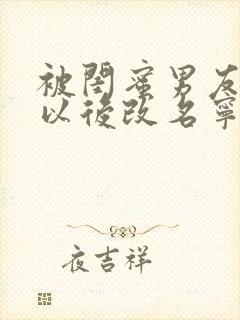 被閨蜜男友
以後改名寧
夜吉祥